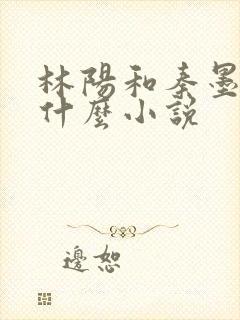 林陽和秦墨
什麼小說
邊恕